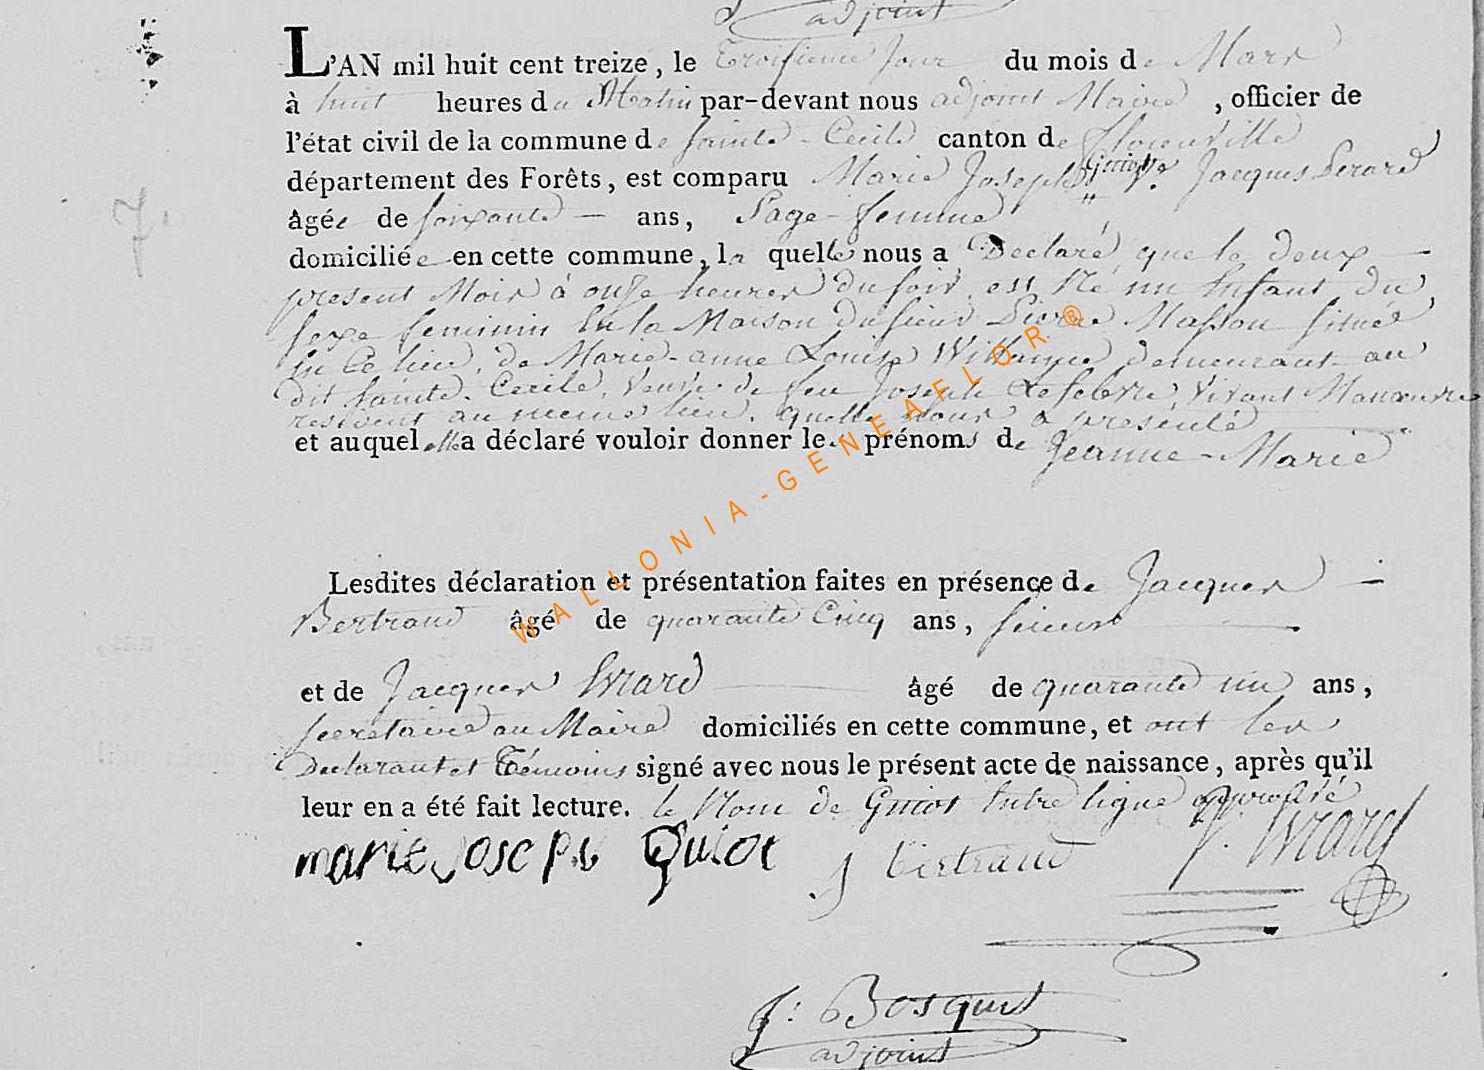 adjoint
L'AN mil huit cent treize, le troisieme jour du mois de Mars
à huit heures du Matin par-devant nous adjoint Maire, officier de
l'état civil de la commune de Sainte-Cecile canton de florenville
département des Forêts, est comparu Marie Joseph Guiot Ve. Jacques Perard
âgée de soixante — ans, Sage-femme
domiciliée en cette commune, la quelle nous a Declaré que le deux
present Mois à onze heures du soir, est Né un Enfant du
sexe feminin En la Maison du sieur Pierre Masson située
en Ce lieu, de Marie-anne Louise demeurant au
dit Sainte-Cecile, Veuve de feu Joseph Lefebvre, Vivant Manœuvre
resident au meme lieu, quelle nous a presenté
et auquel elle a déclaré vouloir donner les prénoms de Jeanne-Marie
7.
Lesdites déclaration et présentation faites en présence de Jacques —
Bertrand âgé de quarante Cinq ans,
et de Jacques Evrard âgé de quarante un ans,
secretaire au Maire domiciliés en cette commune, et ont les
Declarant et Témoins signé avec nous le présent acte de naissance, après qu'il
leur en a été fait lecture. le Nom de Guiot Entre ligne approuvé
marie joseph Guiot J Bertrand J. Evrard
J: Bosquet
adjoint
WALLONIA-GENEAFLOR®